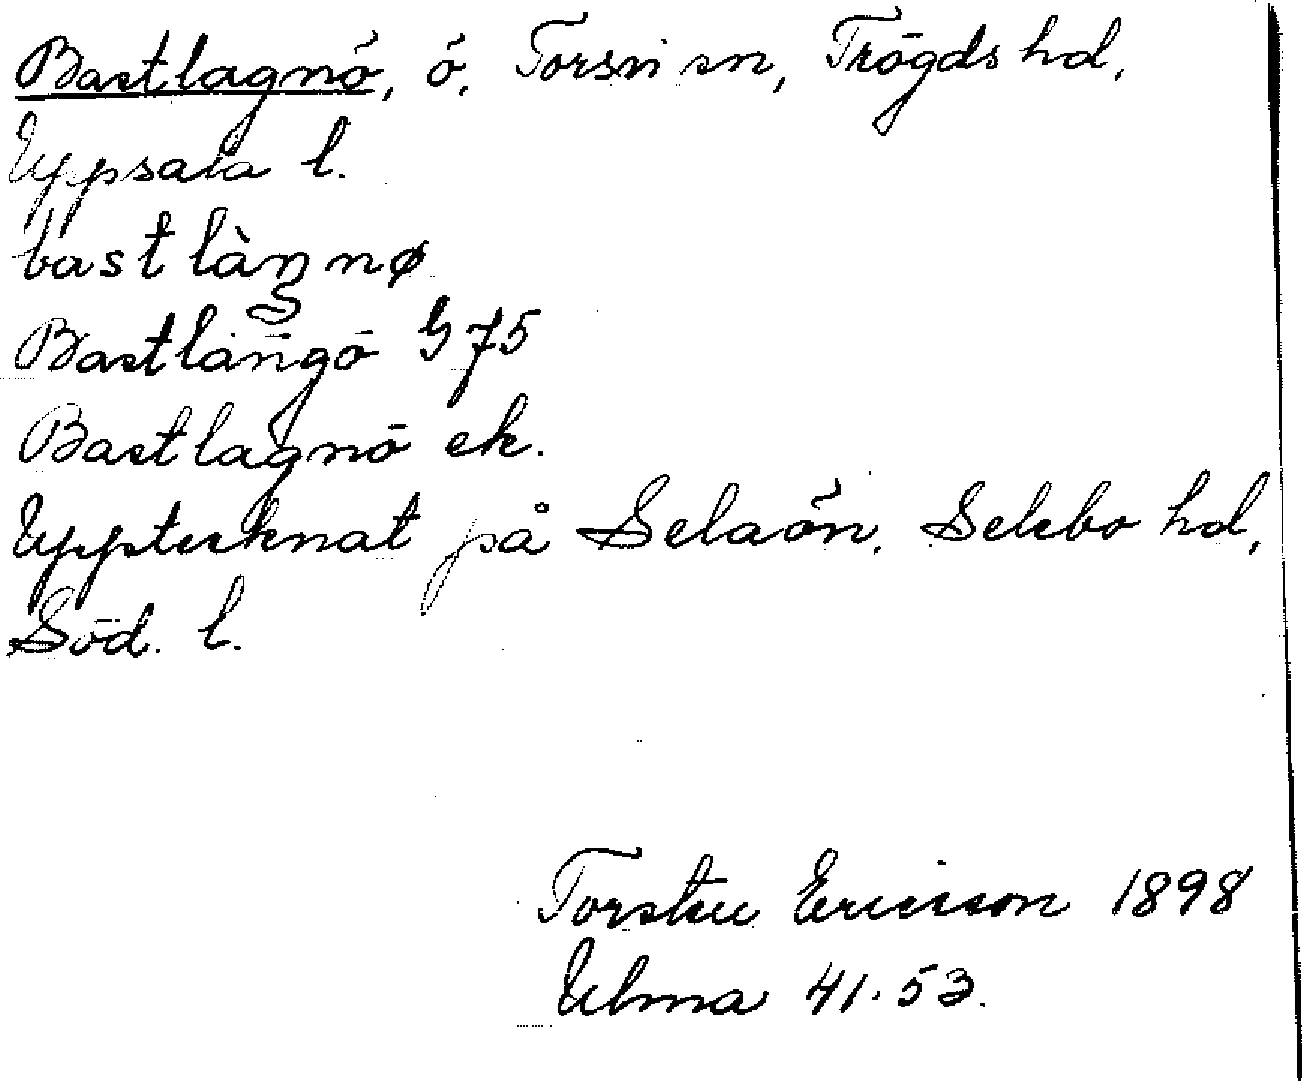 Bastlagnö, ö, Torsvi sn, Trögds hd,
Uppsala l.
bastlàŋnø
Bastlångö G 75
Bastlagnö ek.
Upptecknat på Selaön, Selebo hd,
Söd. l.
Torsten Ericsson 1898
Ulma 41.53.